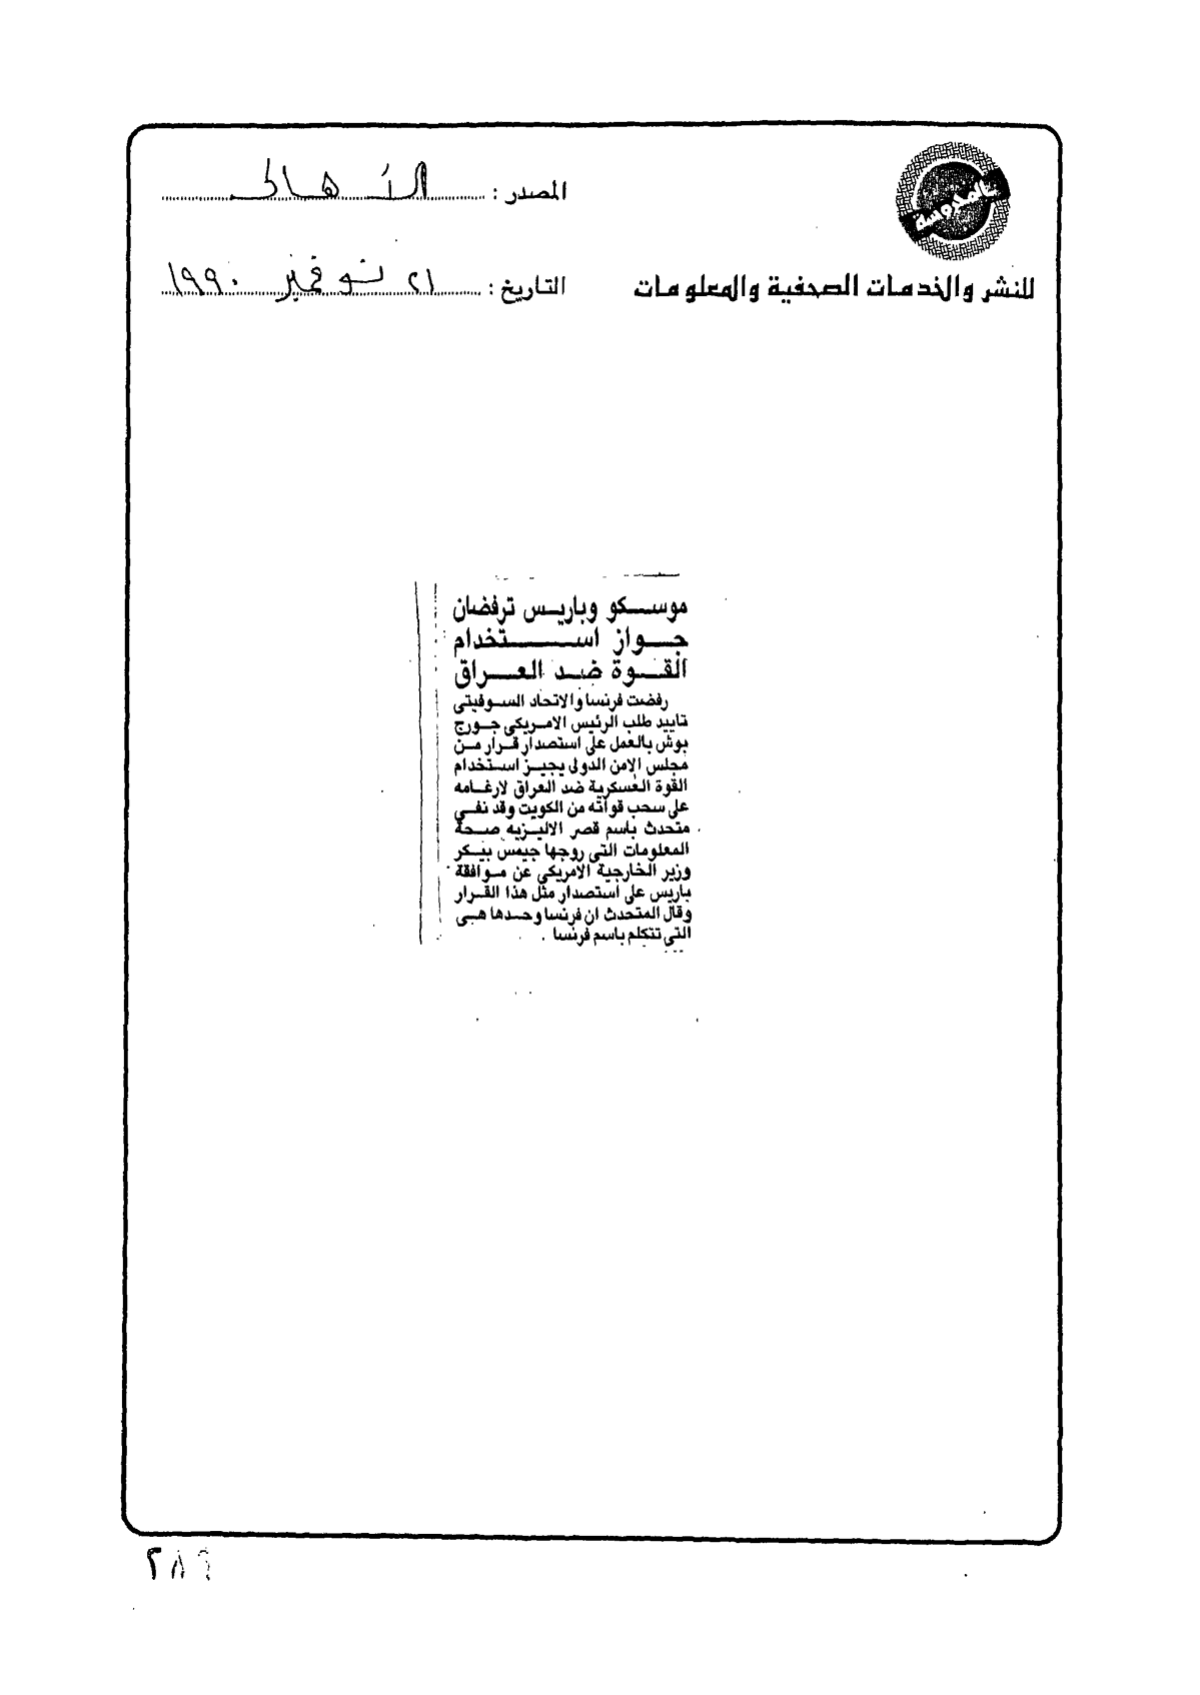 المحروسة
للنشر والخدمات الصحفية والمعلومات
المصدر : الأهالى
التاريخ : ٢١ نوفمبر ١٩٩٠
موسكو وباريس ترفضان
جواز استخدام
القوة ضد العراق
رفضت فرنسا والاتحاد السوفيتى
تاييد طلب الرئيس الامريكى جورج
بوش بالعمل على استصدار قرار من
مجلس الامن الدولى يجيز استخدام
القوة العسكرية ضد العراق لارغامه
على سحب قواته من الكويت وقد نفى
متحدث باسم قصر الاليزيه صحة
المعلومات التى روجها جيمس بيكر
وزير الخارجية الامريكى عن موافقة
باريس على استصدار مثل هذا القرار
وقال المتحدث ان فرنسا وحدها هى
التى تتكلم باسم فرنسا .
٢٨٩